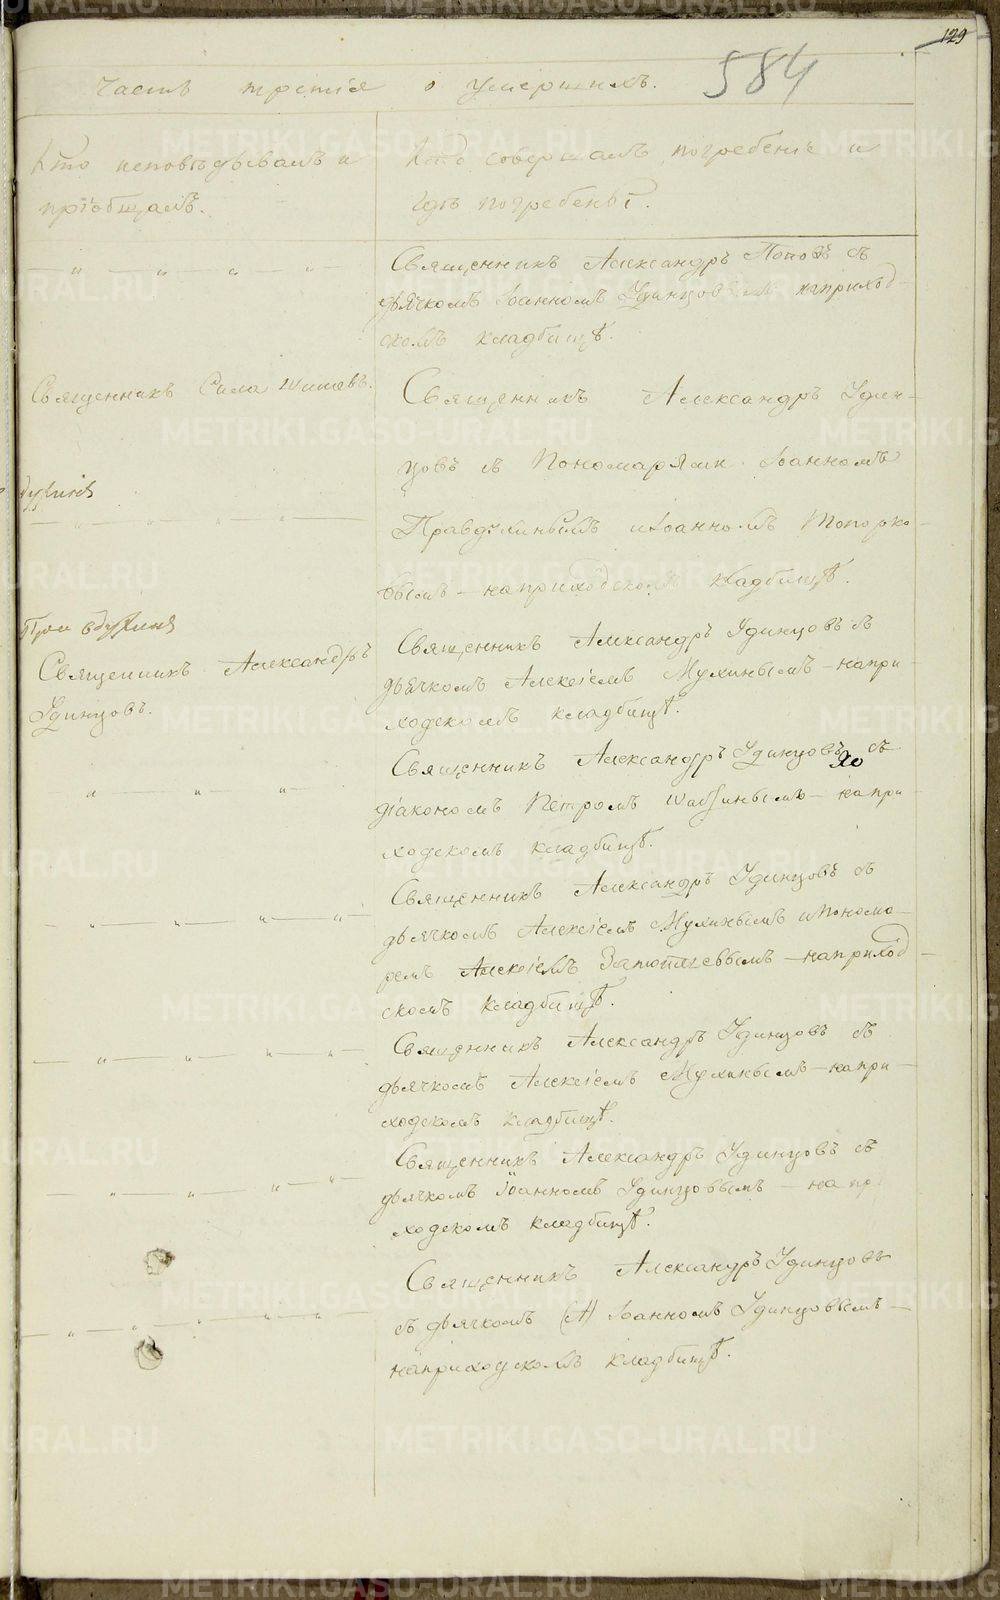 129
584
Часть третія о умершихъ.
Кто исповѣдывалъ и
пріобщалъ.
Кто совершалъ погребеніе и
гдѣ погребены.
Священникъ Александръ Поповъ съ
дьячкомъ Іоанномъ Удинцовымъ на приход-
скомъ кладбищѣ.
Священникъ Сила Шишевъ.
Священникъ Александръ Удин-
цовъ съ Пономарями Іоанномъ
Правдинымъ и Іоанномъ Топорко-
вымъ - на приходскомъ кладбищѣ.
При
Священникъ Александръ
Удинцовъ.
Священникъ Александръ Удинцовъ съ
дьячкомъ Алексіемъ Мухинымъ - на при-
ходскомъ кладбищѣ.
Священникъ Александръ Удинцовъ съ
діакономъ Петромъ - на при-
ходскомъ кладбищѣ.
Священникъ Александръ Удинцовъ съ
дьячкомъ Алексіемъ Мухинымъ и понома-
ремъ Алексіемъ - на приход-
скомъ кладбищѣ.
Священникъ Александръ Удинцовъ съ
дьячкомъ Алексіемъ Мухинымъ - на при-
ходскомъ кладбищѣ.
Священникъ Александръ Удинцовъ съ
дьячкомъ Іоанномъ Удинцовымъ - на при
ходскомъ кладбищѣ.
Священникъ Александръ Удинцовъ
съ дьячкомъ Іоанномъ Удинцовымъ -
на приходскомъ кладбищѣ.
METRIKI.GASO-URAL.RU